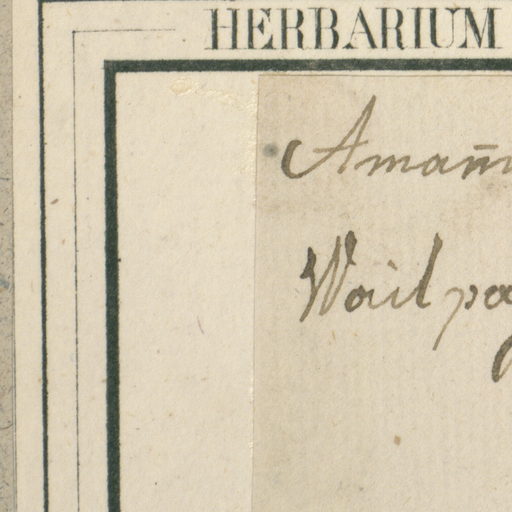 HERBARIUM
Amañ
Wail